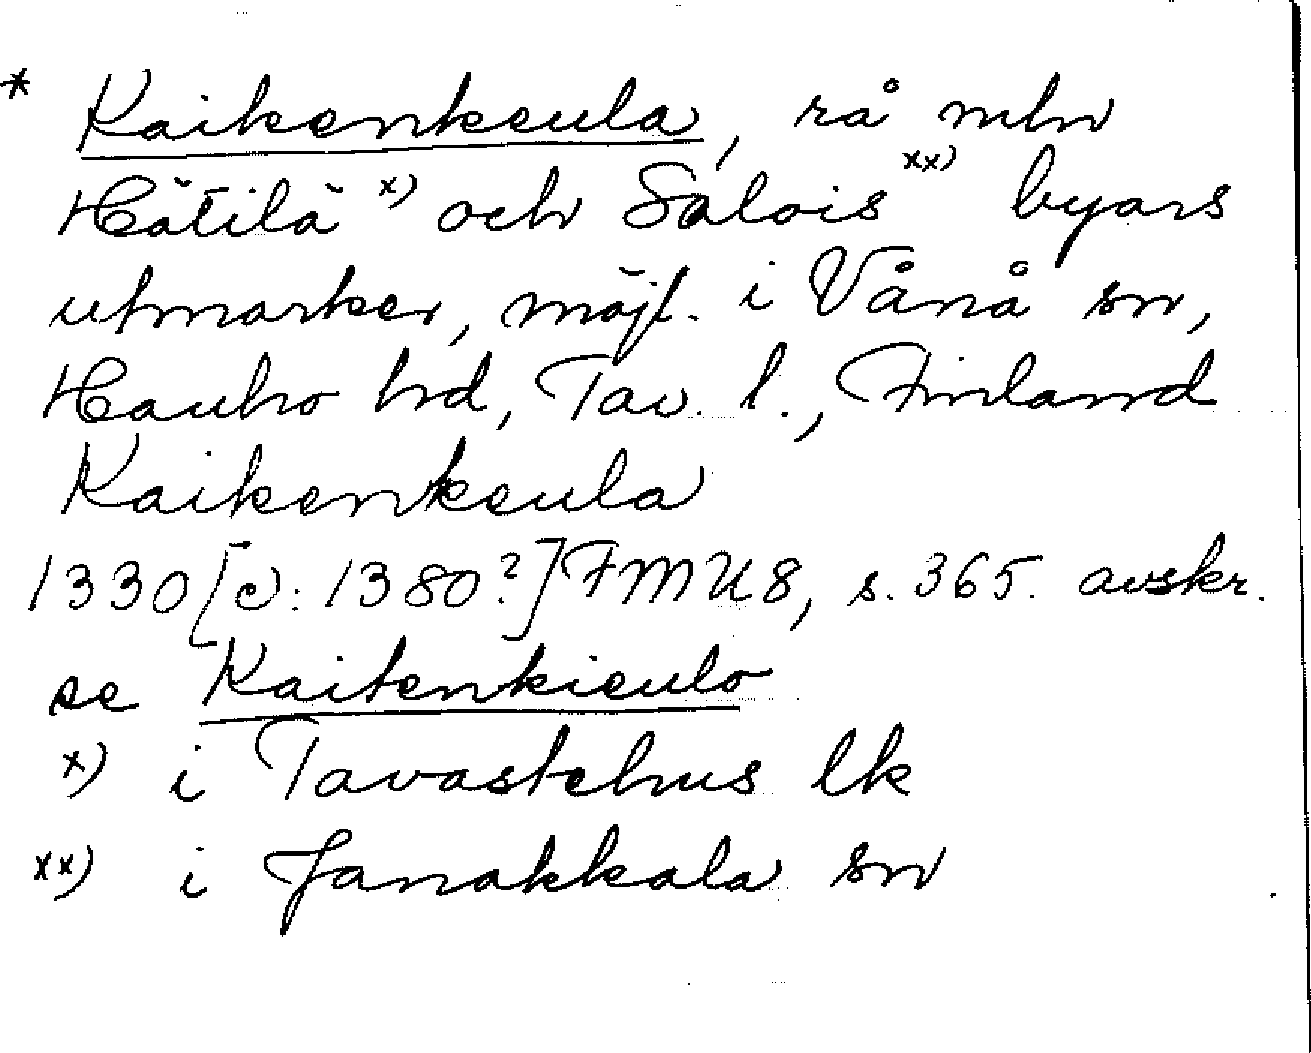 * Kaikenkeula, rå mln
Hätilä x) och Salois xx) byars
utmarker, möjl. i Vånå sn,
Hauho hd, Tav. l., Finland
Kaikenkeula
1330 [ɔ: 1380?] FMU 8, s. 365. avskr.
se Kaitenkieulo
x) i Tavastehus lk
xx) i Janakkala sn